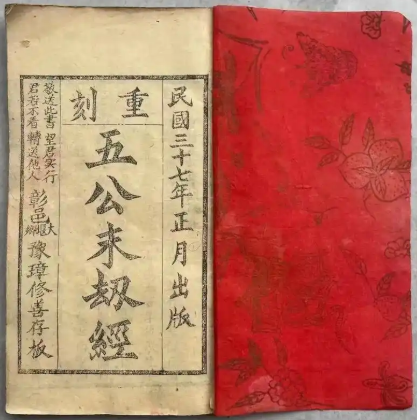 民國三十七年正月出版
重刻
五公末刼經
敬送此書 望君实行
君若不看 轉送他人
彰邑
豫璋修善存板